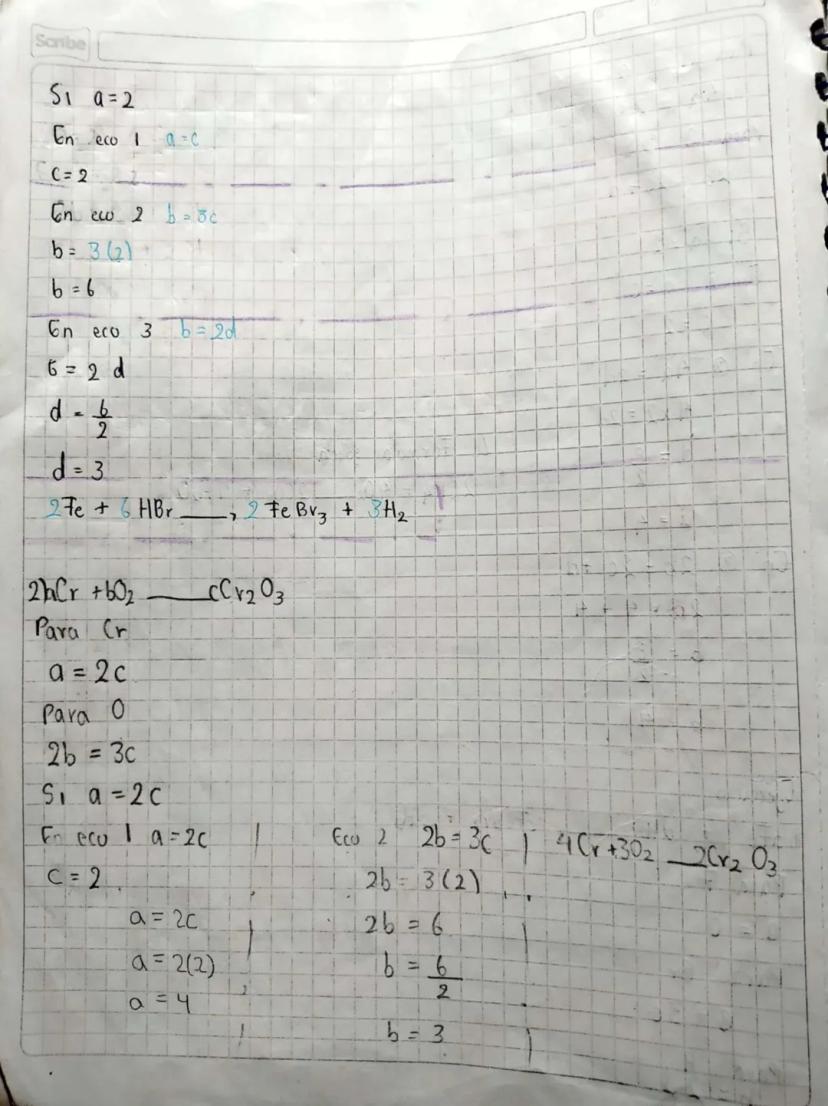 Scribe
Si a=2
En eco 1 a=c
C=2
En ecu 2 b=3c
b= 3(2)
b=6
En eco 3 b=2d
6= 2 d
d = 6/2
d = 3
2Fe + 6HBr → 2FeBr₃ + 3H₂
Cr + bO₂ — cCr₂O₃
Para Cr
a = 2c
Para O
2b = 3c
Si a = 2c
En eco 1 a=2c
C=2
a = 2c
a=2(2)
a=4
Ecu 2 2b=3c
2b= 3(2)
2b = 6
b = 6/2
b = 3
4Cr+3O₂ — 2Cr₂O₃